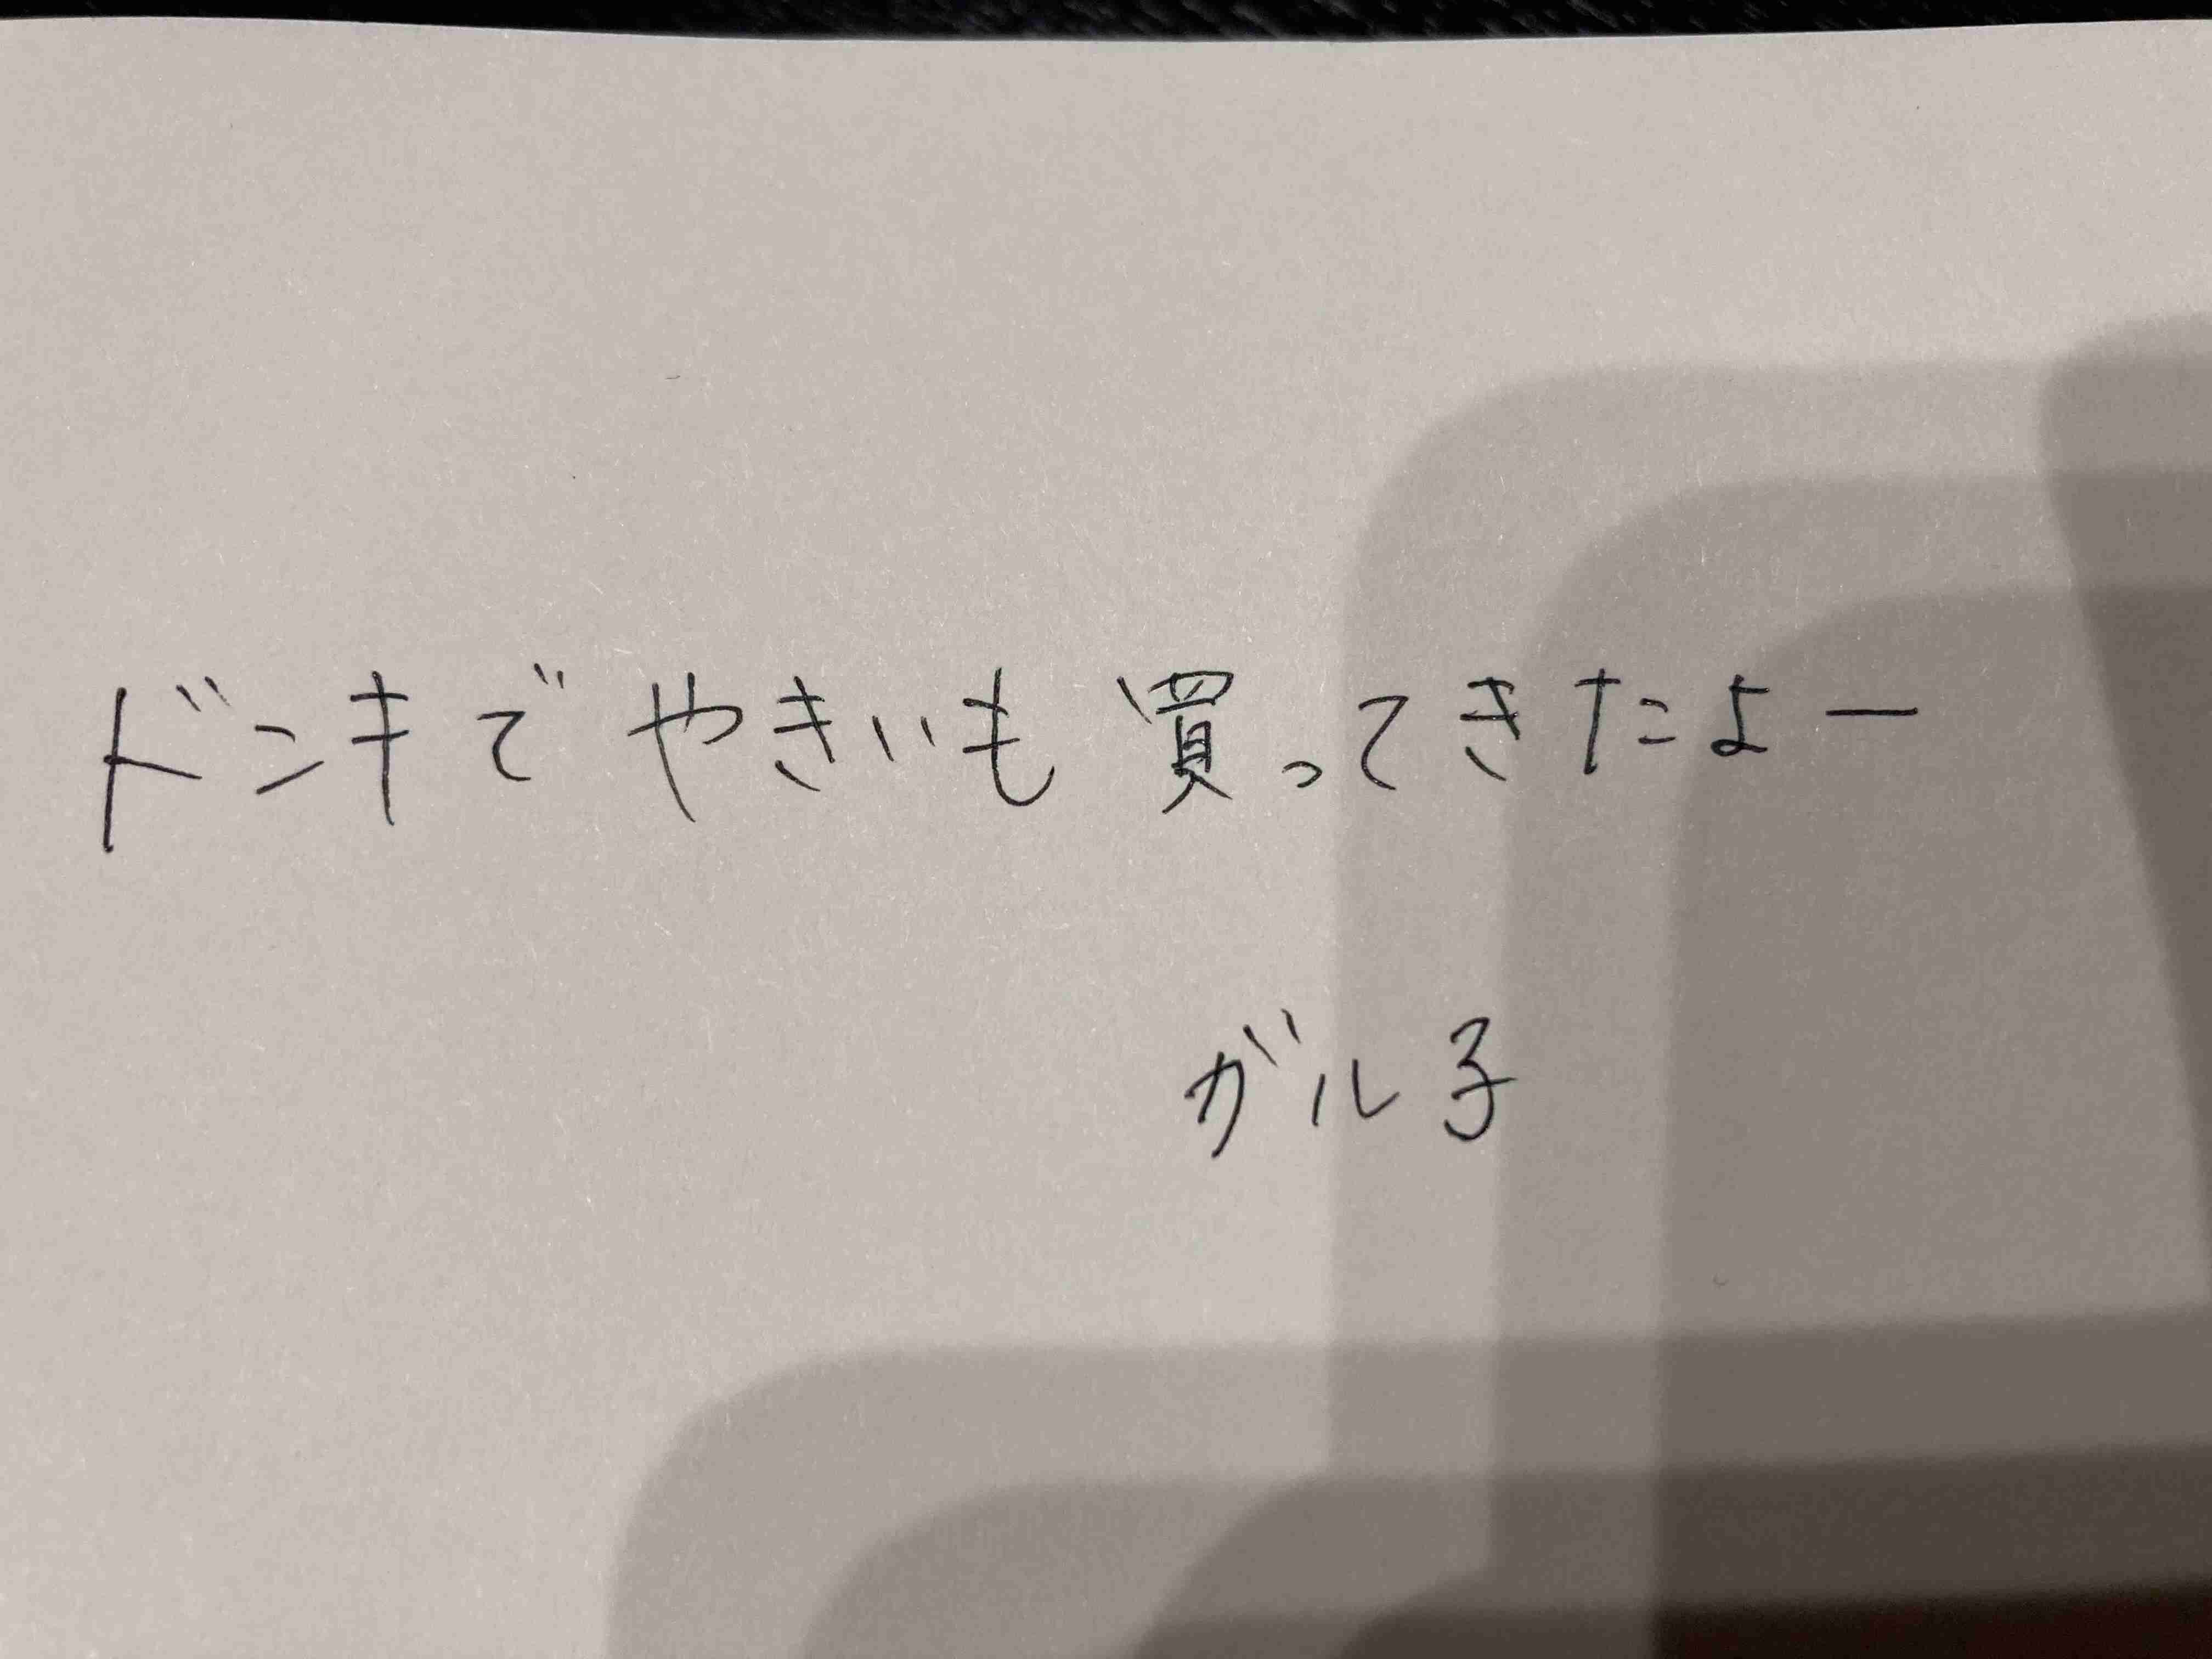 ドンキでやきいも買ってきたよー
ガル子